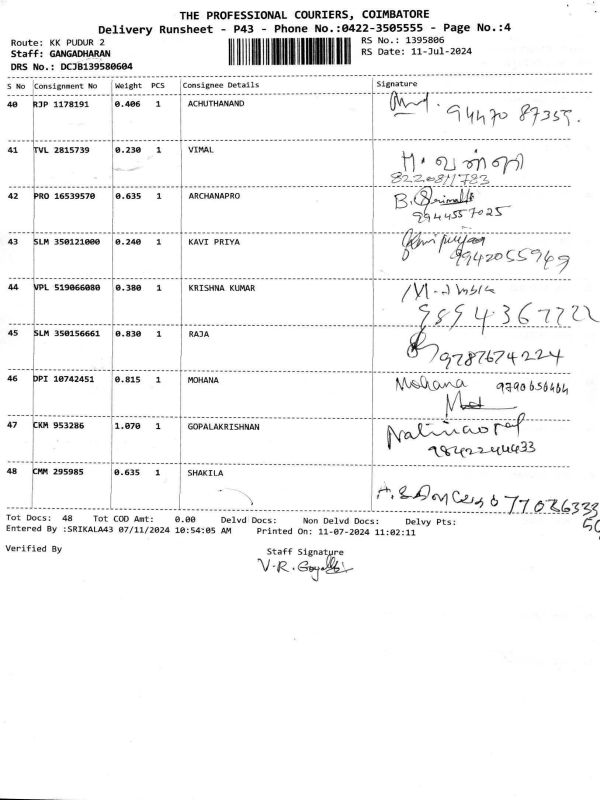 THE PROFESSIONAL COURIERS, COIMBATORE
Delivery Runsheet - P43 - Phone No.:0422-3505555 - Page No.:4
Route: KK PUDUR 2 RS No.: 1395806
Staff: GANGADHARAN RS Date: 11-Jul-2024
DRS No.: DCJB139580604
S No Consignment No Weight PCS Consignee Details Signature
40 RJP 1178191 0.406 1 ACHUTHANAND
94470 87355.
41 TVL 2815739 0.230 1 VIMAL
8220811783
42 PRO 16539570 0.635 1 ARCHANAPRO B.
9944557025
43 SLM 350121000 0.240 1 KAVI PRIYA
9942055949
44 VPL 519066080 0.380 1 KRISHNA KUMAR
9894367722
45 SLM 350156661 0.830 1 RAJA
9787674224
46 DPI 10742451 0.815 1 MOHANA Mohana 9790656464
47 CKM 953286 1.070 1 GOPALAKRISHNAN
9842244433
48 CMM 295985 0.635 1 SHAKILA
Tot Docs: 48 Tot COD Amt: 0.00 Delvd Docs: Non Delvd Docs: Delvy Pts:
Entered By :SRIKALA43 07/11/2024 10:54:05 AM Printed On: 11-07-2024 11:02:11
Verified By Staff Signature
V.R.